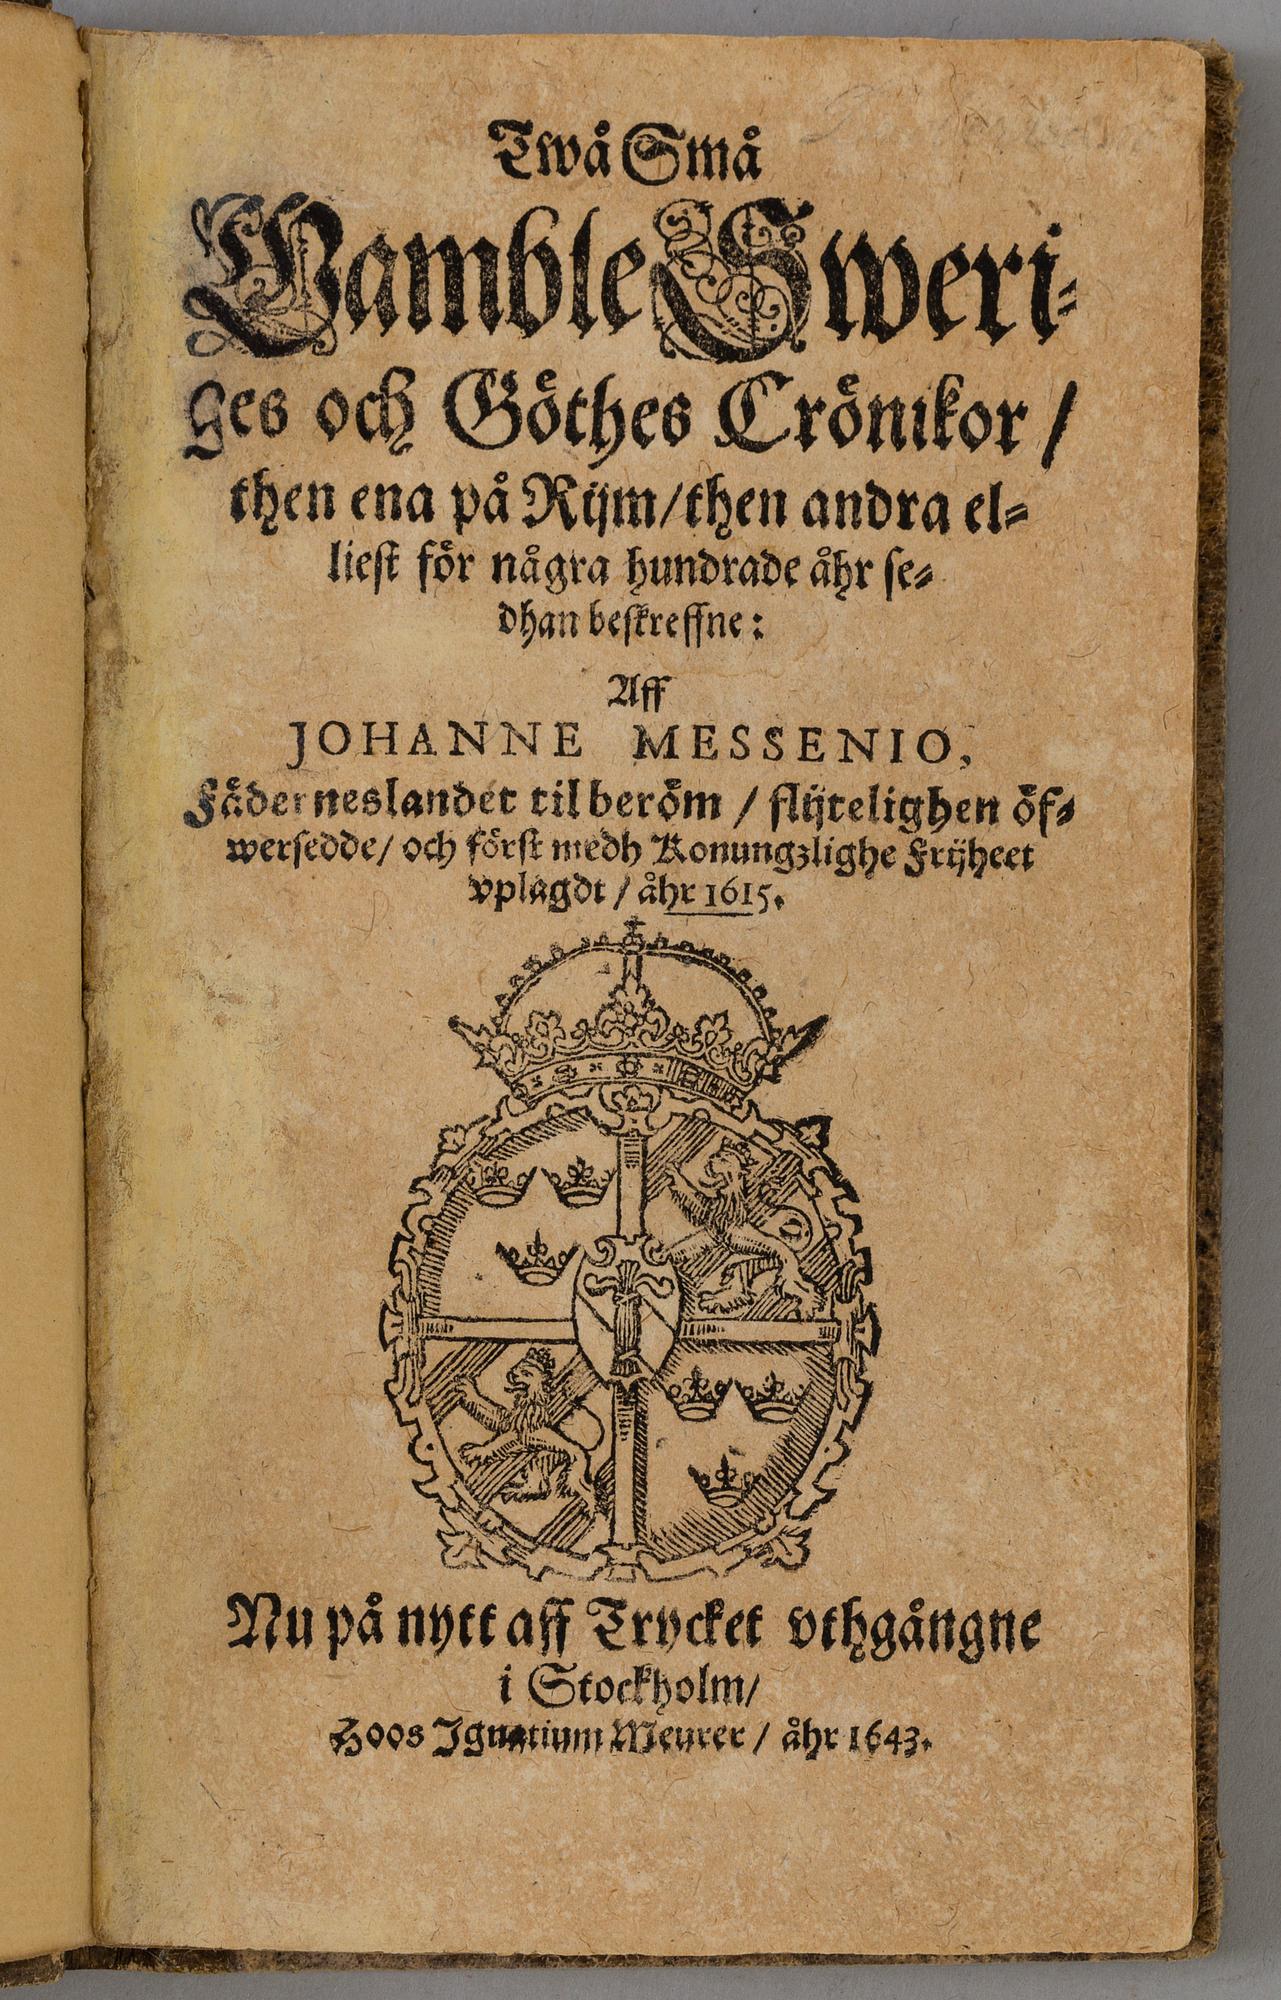 Twå Små
Gamble Sweri-
ges och Göthes Crönikor /
then ena på Rijm/then andra el-
liest för några hundrade åhr se-
dhan beskreffne:
Aff
JOHANNE MESSENIO,
Fäderneslandet til beröm / flijtelighen öf-
wersedde/ och först medh Konungzlighe Frijheet
vplagdt / åhr 1615.
Nu på nytt aff Trycket vthgångne
i Stockholm/
Hoos Ignatium Meurer / åhr 1643.